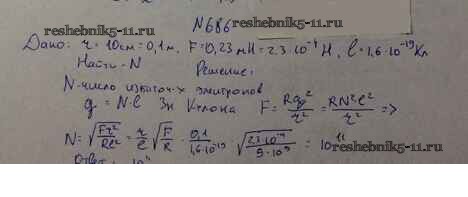 reshebnik5-11.ru
№686
reshebnik5-11.ru
Дано: r = 10см = 0,1м, F = 0,23 мН = 2,3·10⁻⁴ Н, e = 1,6·10⁻¹⁹ Кл
Найти - N Решение:
N - число избыточ-х электронов
q = N·e Зн Кулона F = Rq²/r² = RN²e²/r² =>
N = √(Fr²/Re²) = r/e √(F/R) · 0,1/1,6·10⁻¹⁹ √(2,3·10⁻⁴/9·10⁹) = 10¹¹
reshebnik5-11.ru